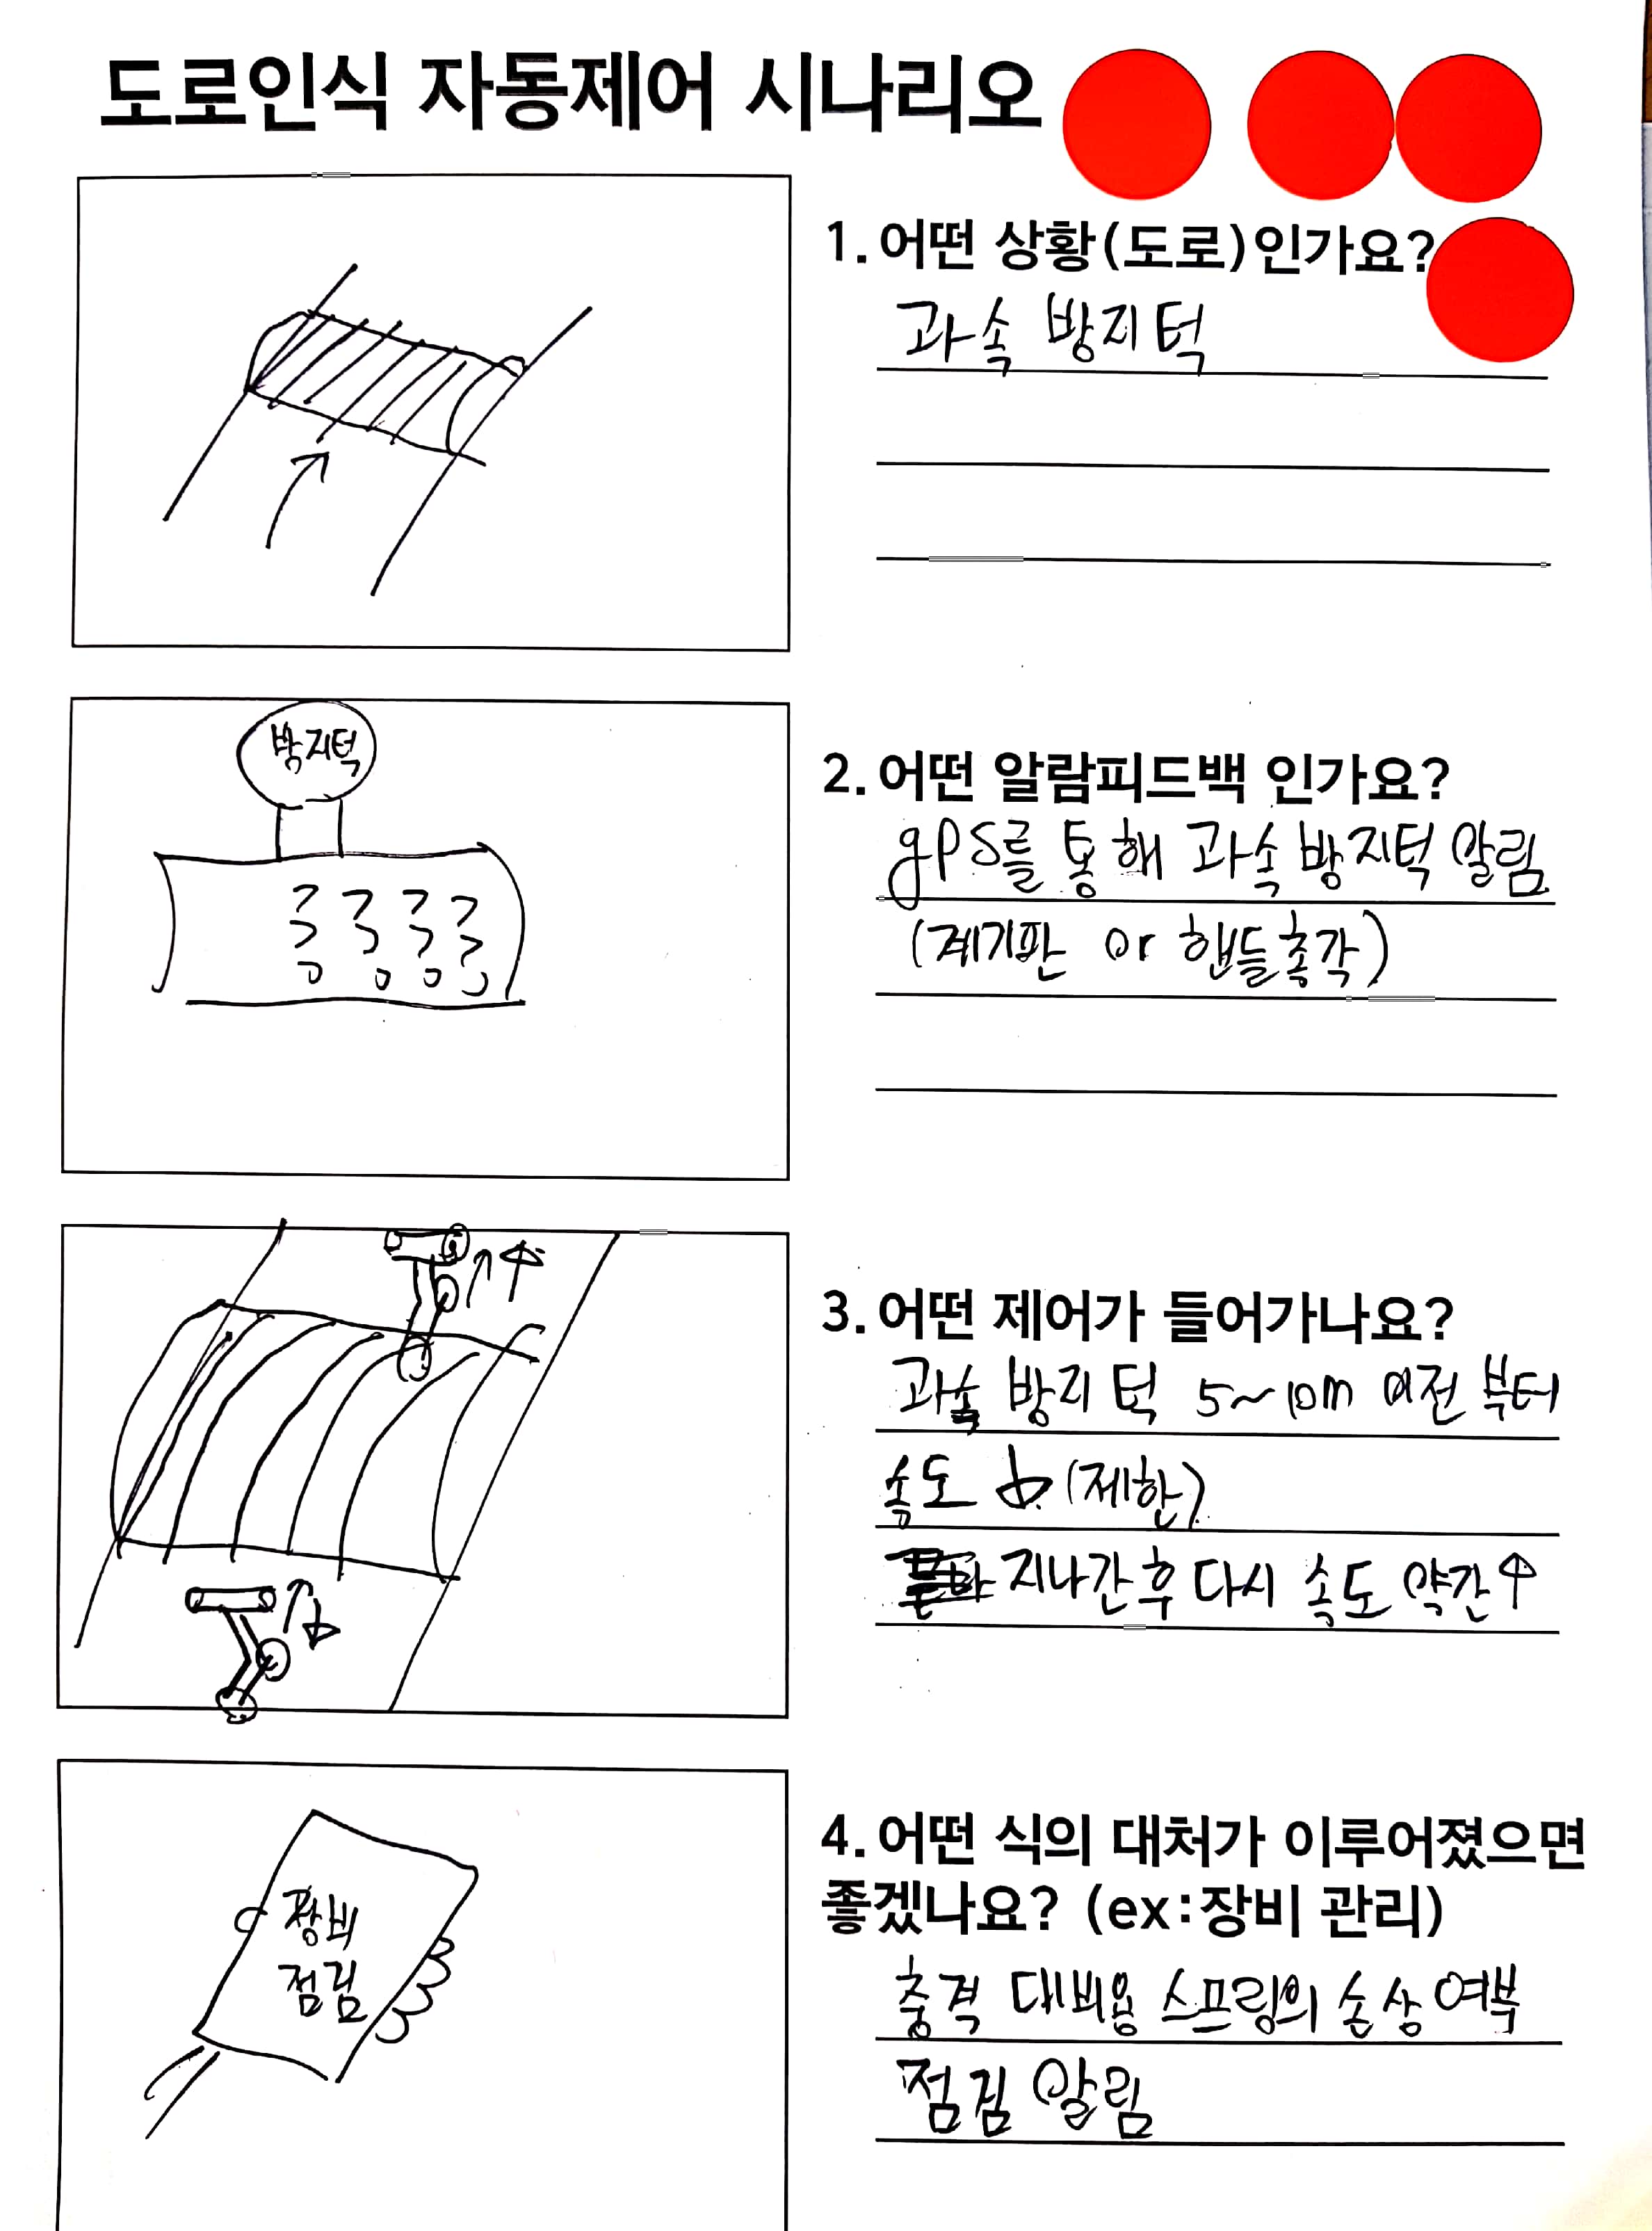 도로인식 자동제어 시나리오
1. 어떤 상황(도로)인가요?
과속 방지턱
방지턱
2. 어떤 알람피드백 인가요?
gPS를 통해 과속 방지턱 알림
(계기판 or 핸들촉각)
3. 어떤 제어가 들어가나요?
과속 방지턱 5~10m 이전 부터
속도 ↓ (제한)
지나간 후 다시 속도 약간↑
장비
점검
4. 어떤 식의 대처가 이루어졌으면
좋겠나요? (ex:장비 관리)
충격 대비용 스프링의 손상 여부
점검 알림